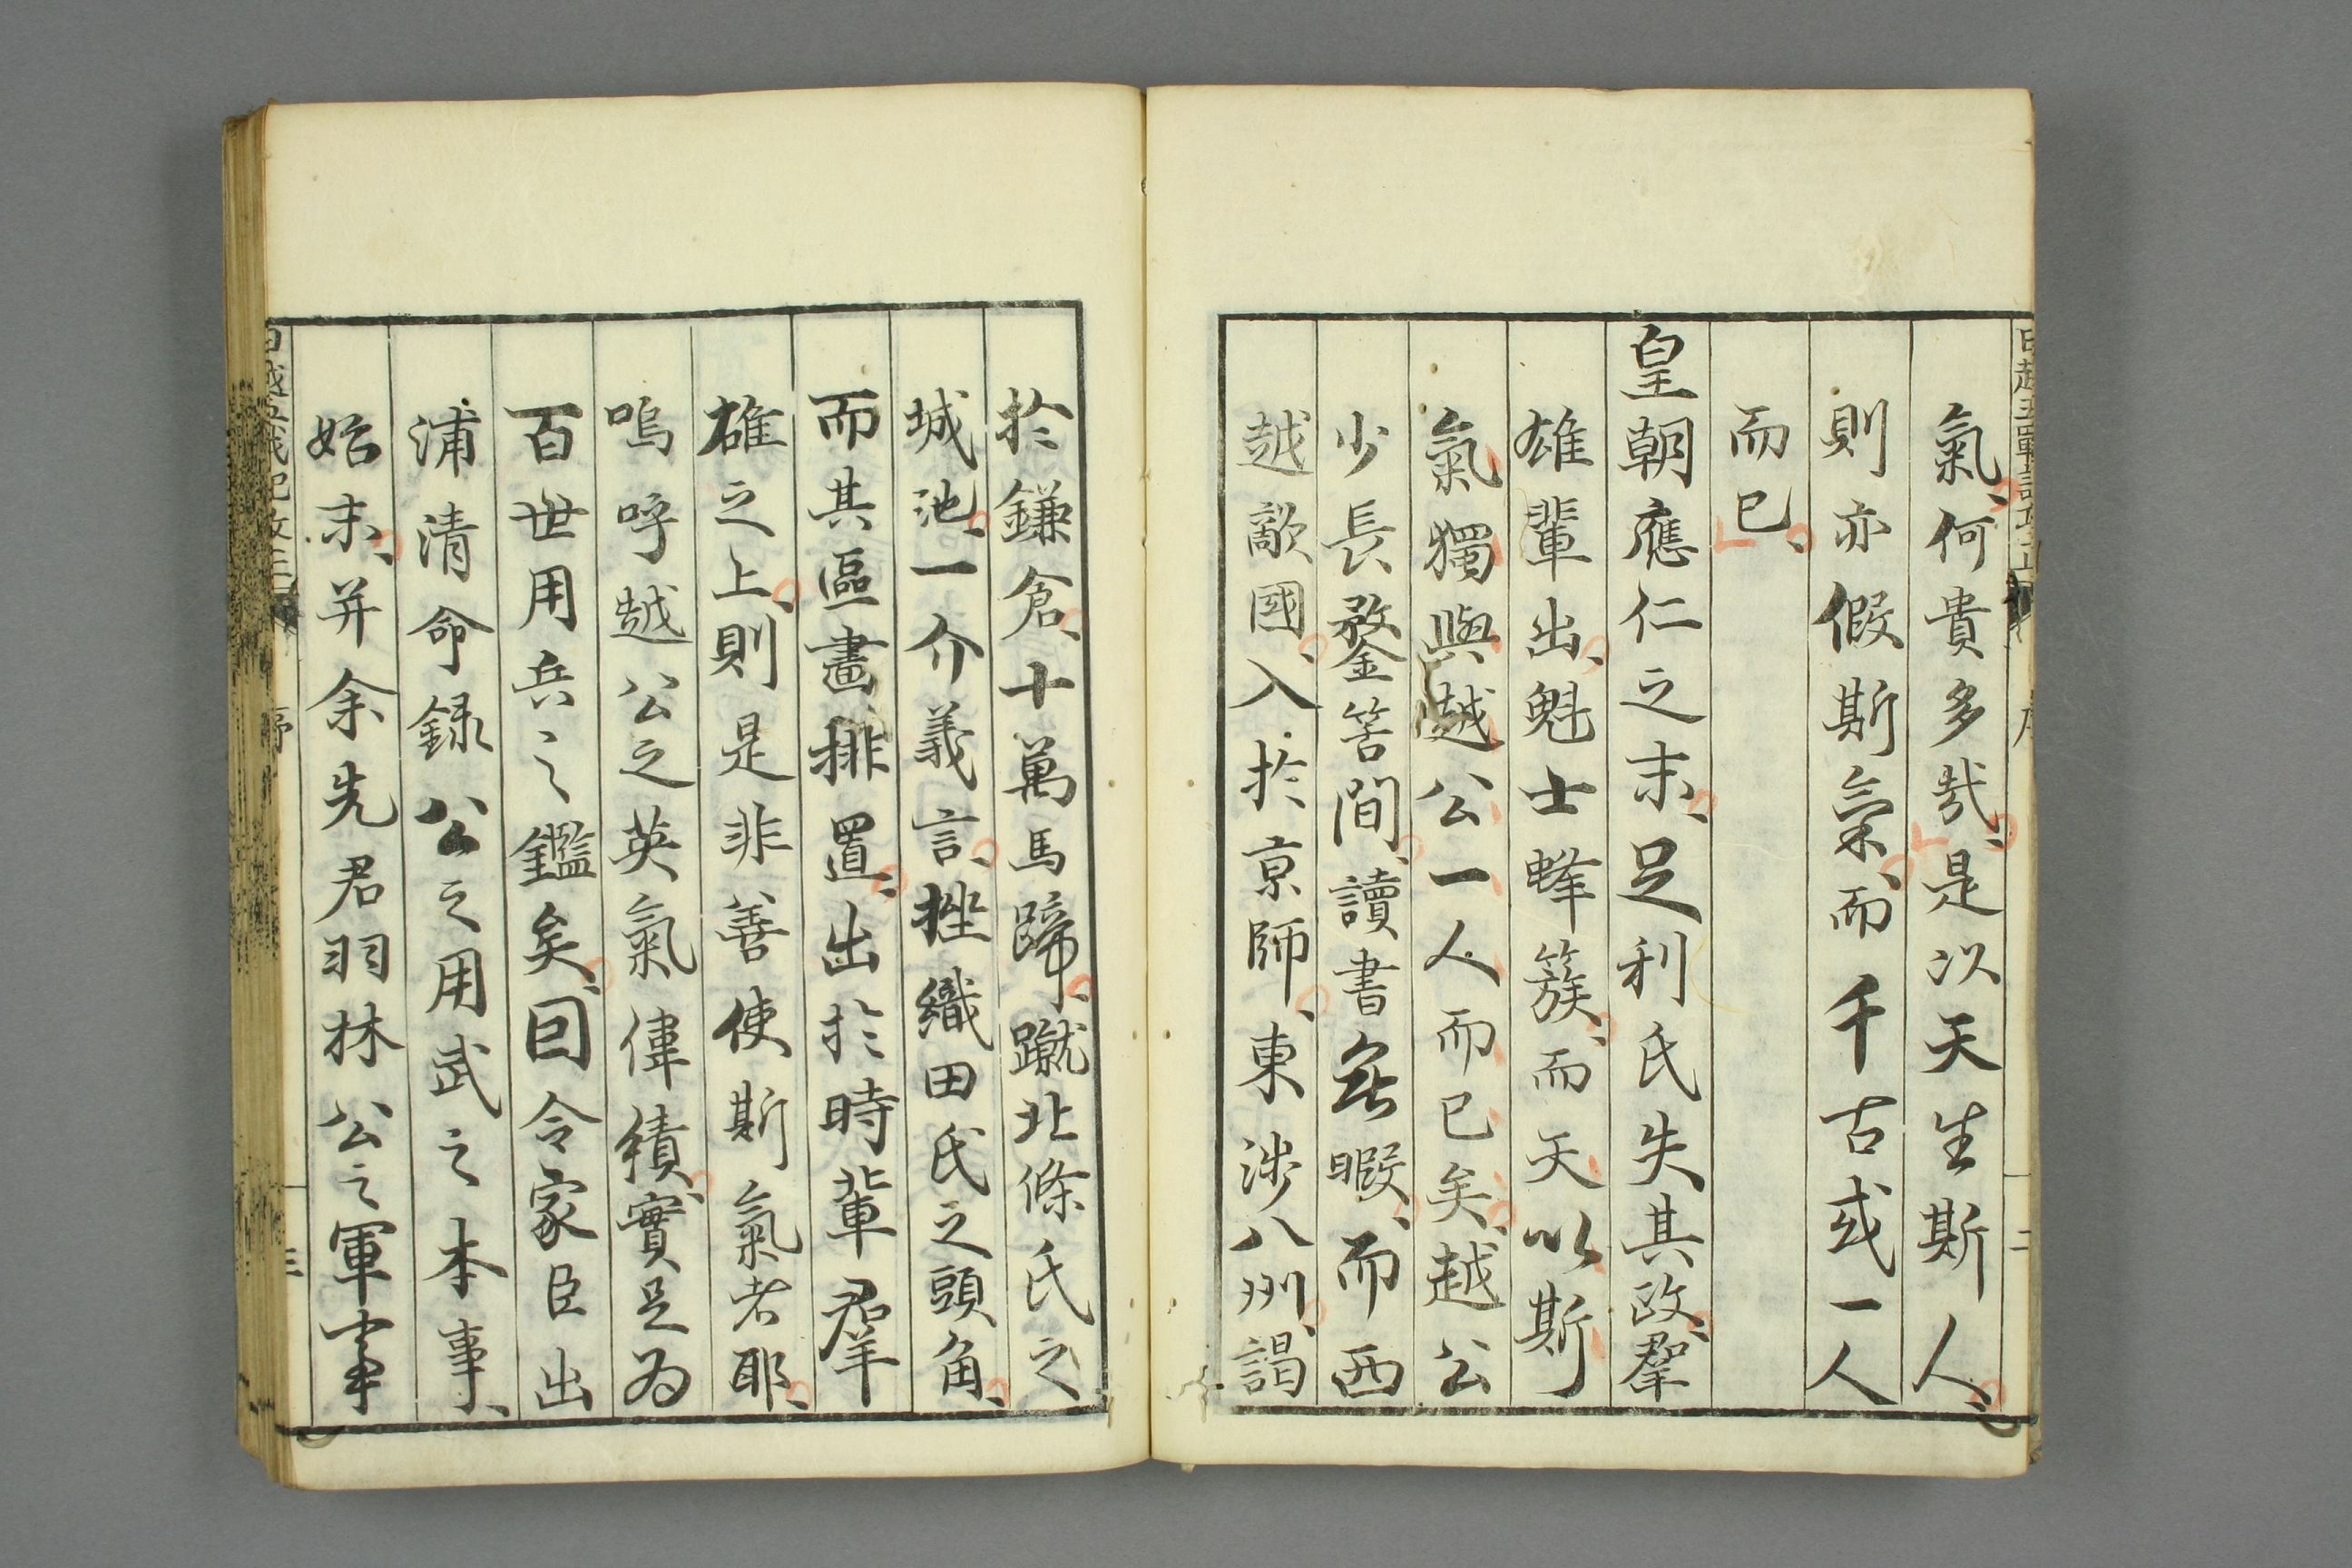 氣、何貴多哉、是以天生斯人、
則亦假斯氣、而千古或一人
而已、
皇朝應仁之末、足利氏失其政、羣
雄輩出、魁士蜂簇、而天以斯
氣獨與越公一人而已矣、越公
少長鍪筈間、讀書無暇、而西
越敵國、入於京師、東涉八州、謁
於鎌倉、十萬馬蹄、蹴北條氏之
城池、一介義言、挫織田氏之頭角、
而其區畫排置、出於時輩群
雄之上、則是非善使斯氣者耶、
嗚呼越公之英氣偉績、實足為
百世用兵之鑑矣、因令家臣出
浦清命録公之用武之本事、
始末、并余先君羽林公之軍事
序
三
二